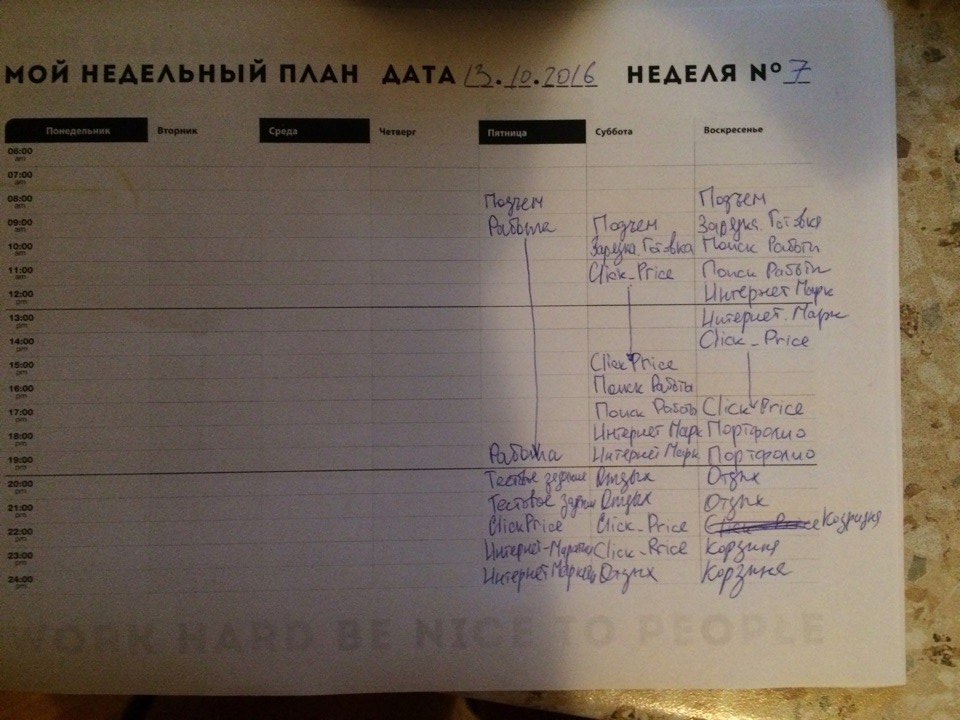 МОЙ НЕДЕЛЬНЫЙ ПЛАН ДАТА 13.10.2016 НЕДЕЛЯ № 7
Понедельник Вторник Среда Четверг Пятница Суббота Воскресенье
06:00 am
07:00 am
08:00 am Подъем Подъем
09:00 am Работа Подъем Зарядка Готовка
10:00 am Зарядка Готовка Поиск Работы
11:00 am Click_Price Поиск Работы
12:00 pm Интернет Марк
13:00 pm Интернет. Марк
14:00 pm Click_Price
15:00 pm Click Price
16:00 pm Поиск Работы
17:00 pm Поиск Работы Click Price
18:00 pm Интернет Марк Портфолио
19:00 pm Работа Интернет Марк Портфолио
20:00 pm Тестовое задание Отдых Отдых
21:00 pm Тестовое задание Отдых Отдых
22:00 pm ClickPrice Click_Price Click Price
23:00 pm Интернет- Click_Price Корзина
24:00 pm Интернет Отдых Корзина
WORK HARD BE NICE TO PEOPLE